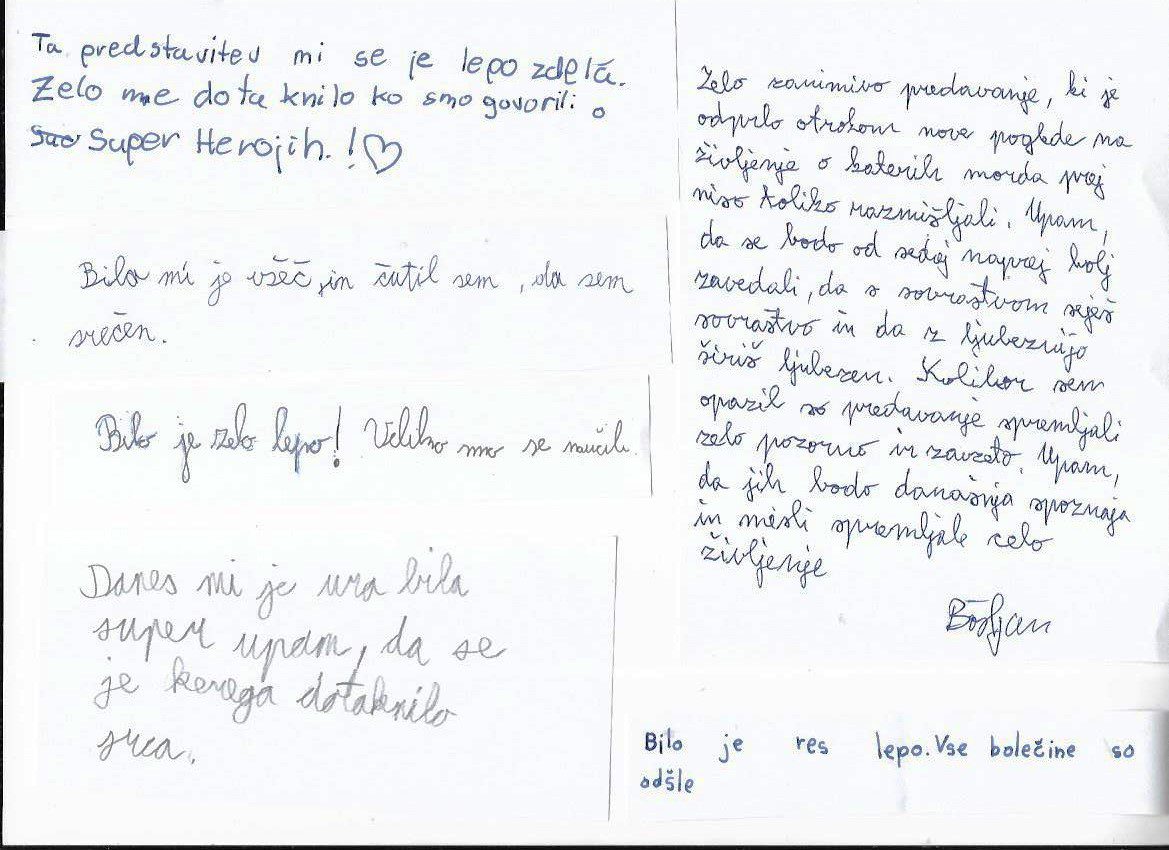 Ta predstavitev mi se je lepo zdela.
Zelo me dota knilo ko smo govorili o
Super Herojih. !♡
Bilo mi je všeč, in čutil sem, da sem
srečen.
Bilo je zelo lepo! Veliko smo se naučili.
Danes mi je ura bila
super upam, da se
je kerega dotaknilo
srca.
Zelo zanimivo predavanje, ki je
odprlo otrokom nove poglede na
življenje o katerih morda prej
niso toliko razmišljali. Upam,
da se bodo od sedaj naprej bolj
zavedali, da s sovraštvom seješ
sovraštvo in da z ljubeznijo
širiš ljubezen. Kolikor sem
opazil so predavanje spremljali
zelo pozorno in zavzeto. Upam,
da jih bodo današnja spoznaja
in misli spremljale celo
življenje
Boštjan
Bilo je res lepo. Vse bolečine so
odšle